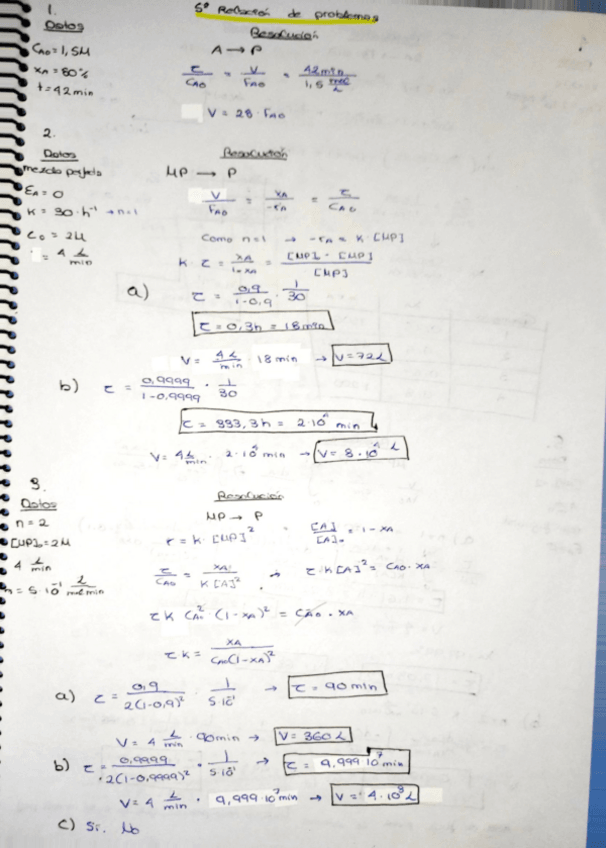 5º Relación de problemas
1.
Datos
Resolución
CA0 = 1,5M
XA = 80%
t = 42 min
A → P
τ/CA0 = V/FA0 = 42min / 1,5 mol/L
V = 28 · FA0
2.
Datos
Resolución
mezcla perfecta
εA = 0
K = 30 · h⁻¹ → n=1
C0 = 2M
= 4 L/min
MP → P
V/FA0 = XA/-rA = τ/CA0
Como n=1 → -rA = K · [MP]
K · τ = XA/1-XA = [MP]0 - [MP] / [MP]
a) τ = 0,9/1-0,9 · 1/30
τ = 0,3h = 18min
V = 4L/min 18 min → V=72L
b) τ = 0,9999/1-0,9999 · 1/30
τ = 333,3h = 2·10⁴ min
V = 4 L/min · 2·10⁴ min → V = 8·10⁴ L
3.
Datos
Resolución
n = 2
[MP]0=2M
4 L/min
k = 5·10⁻¹ L/mol min
MP → P
r = K · [MP]² [A]/[A]0 = 1-XA
τ/CA0 = XA/K[A]² → τ·K[A]² = CA0 · XA
τK CA0² (1-XA)² = CA0 · XA
τK = XA/CA0(1-XA)²
a) τ = 0,9/2(1-0,9)² · 1/5·10⁻¹ → τ = 90 min
V = 4 L/min · 90min → V = 360L
b) τ = 0,9999/2(1-0,9999)² · 1/5·10⁻¹ → τ = 9,999·10⁷ min
V = 4 L/min · 9,999·10⁷ min → V = 4·10⁸ L
c) Sí.